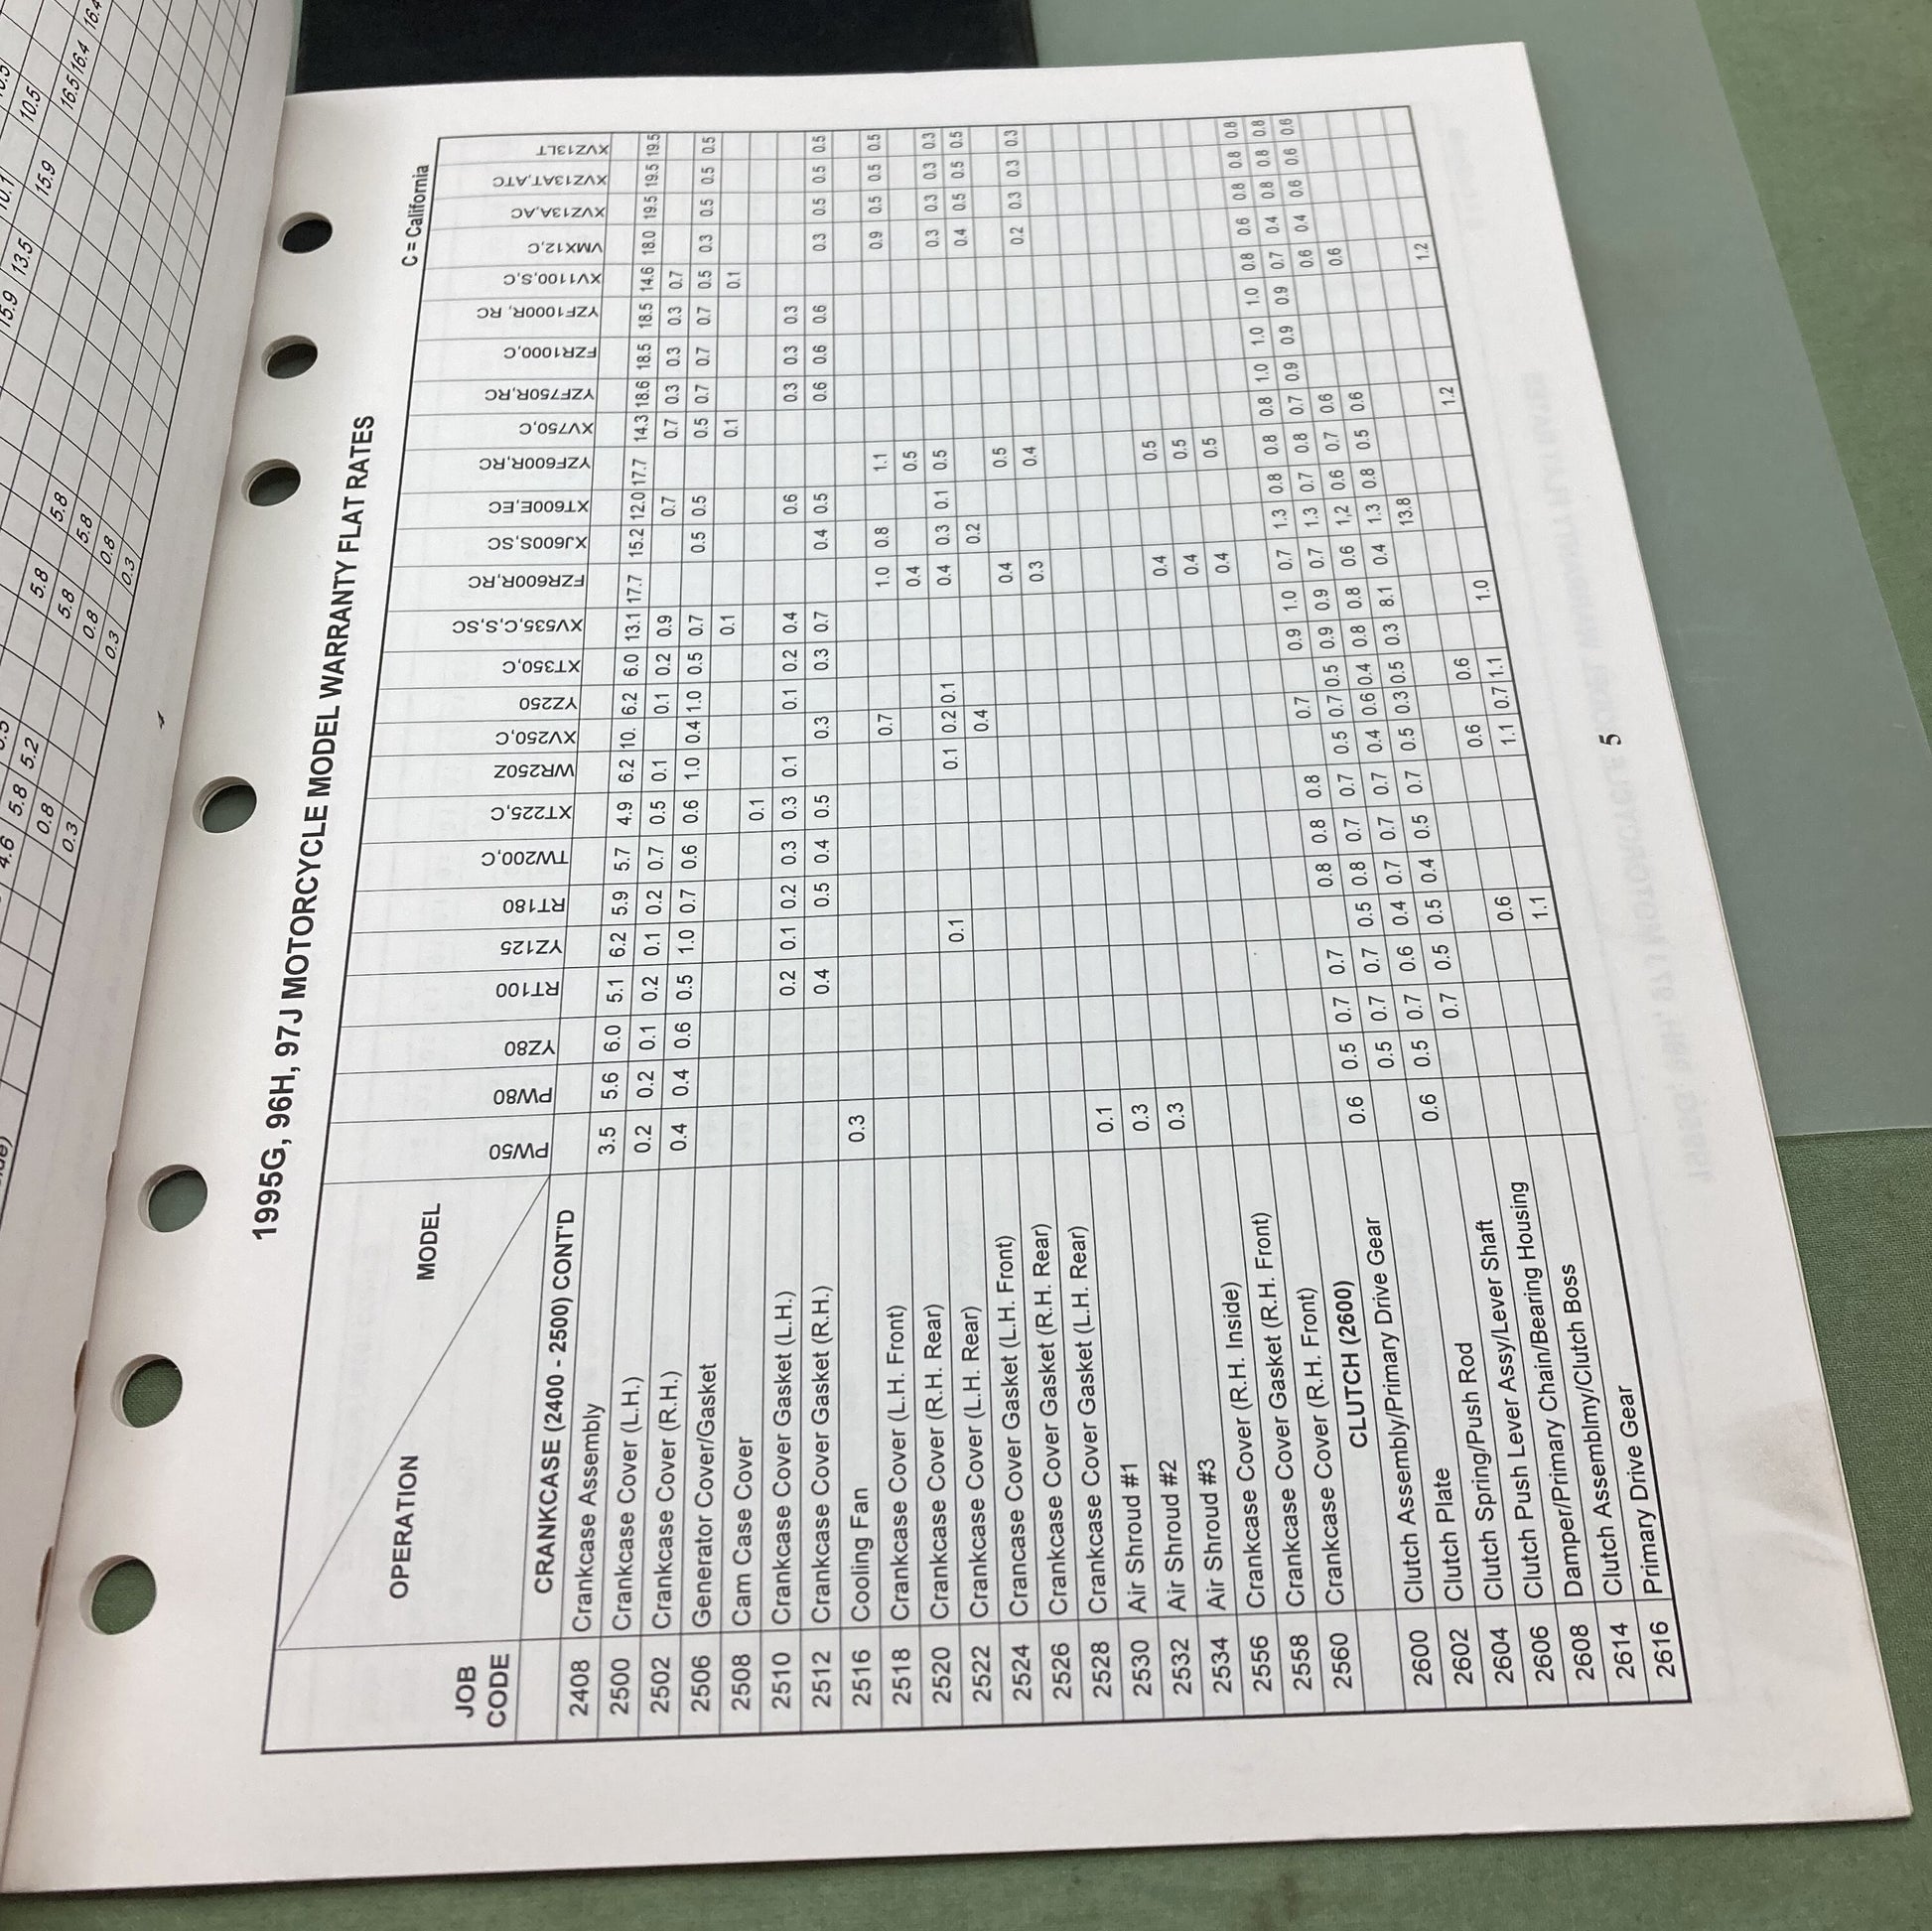 1995G, 96H, 97J MOTORCYCLE MODEL WARRANTY FLAT RATES
C = California
JOB CODE OPERATION MODEL PW50 PW80 YZ80 RT100 YZ125 RT180 TW200,C XT225,C WR250Z XV250,C YZ250 XT350,C XV535,C,S,SC FZR600R,RC XJ600S,SC XT600E,EC YZF600R,RC XV750,C YZF750R,RC FZR1000,C YZF1000R, RC XV1100,S,C VMX12,C XVZ13A,AC XVZ13AT,ATC XVZ13LT
CRANKCASE (2400 - 2500) CONT'D
2408 Crankcase Assembly 3.5 5.6 6.0 5.1 6.2 5.9 5.7 4.9 6.2 10. 6.2 6.0 13.1 17.7 15.2 12.0 17.7 14.3 18.6 18.5 18.5 14.6 18.0 19.5 19.5 19.5
2500 Crankcase Cover (L.H.) 0.2 0.2 0.1 0.2 0.1 0.2 0.7 0.5 0.1 0.1 0.2 0.9 0.7 0.7 0.3 0.3 0.3 0.7
2502 Crankcase Cover (R.H.) 0.4 0.4 0.6 0.5 1.0 0.7 0.6 0.6 1.0 0.4 1.0 0.5 0.7 0.5 0.5 0.5 0.7 0.7 0.7 0.5 0.3 0.5 0.5 0.5
2506 Generator Cover/Gasket 0.1 0.1 0.1
2508 Cam Case Cover 0.1
2510 Crankcase Cover Gasket (L.H.) 0.2 0.1 0.2 0.3 0.3 0.1 0.1 0.2 0.4 0.6 0.3 0.3 0.3
2512 Crankcase Cover Gasket (R.H.) 0.4 0.5 0.4 0.5 0.3 0.3 0.7 0.4 0.5 0.6 0.6 0.6 0.3 0.5 0.5 0.5
2516 Cooling Fan 0.3
2518 Crankcase Cover (L.H. Front) 0.7 1.0 0.8 1.1 0.9 0.5 0.5 0.5
2520 Crankcase Cover (R.H. Rear) 0.4 0.5
2522 Crankcase Cover (L.H. Rear) 0.1 0.1 0.2 0.1 0.4 0.3 0.1 0.5 0.3 0.3 0.3 0.3
2524 Crancase Cover Gasket (L.H. Front) 0.4 0.2 0.4 0.5 0.5 0.5
2526 Crankcase Cover Gasket (R.H. Rear) 0.4 0.5
2528 Crankcase Cover Gasket (L.H. Rear) 0.3 0.4 0.2 0.3 0.3 0.3
2530 Air Shroud #1 0.1
2532 Air Shroud #2 0.3
2534 Air Shroud #3 0.3
2556 Crankcase Cover (R.H. Inside) 0.4 0.5
2558 Crankcase Cover Gasket (R.H. Front) 0.4 0.5
2560 Crankcase Cover (R.H. Front) 0.4 0.5
CLUTCH (2600)
2600 Clutch Assembly/Primary Drive Gear 0.6 0.5 0.7 0.7 0.8 0.8 0.8 0.7 0.9 1.0 0.7 1.3 0.8 0.8 0.8 1.0 1.0 1.0 0.8 0.6 0.8 0.8 0.8
2602 Clutch Plate 0.5 0.7 0.7 0.5 0.8 0.7 0.7 0.5 0.7 0.5 0.9 0.9 0.7 1.3 0.7 0.8 0.7 0.9 0.9 0.9 0.7 0.4 0.8 0.8 0.8
2604 Clutch Spring/Push Rod 0.6 0.5 0.7 0.6 0.4 0.7 0.7 0.7 0.4 0.6 0.4 0.8 0.8 0.6 1,2 0.6 0.7 0.6 0.6 0.4 0.6 0.6 0.6
2606 Clutch Push Lever Assy/Lever Shaft 0.7 0.5 0.5 0.4 0.5 0.7 0.5 0.3 0.5 0.3 8.1 0.4 1.3 0.8 0.5 0.6 0.6
2608 Damper/Primary Chain/Bearing Housing 13.8
2614 Clutch Assemblmy/Clutch Boss 0.6 0.6 0.6
2616 Primary Drive Gear 1.1 1.1 0.7 1.1 1.0 1.2 1.2
5
4